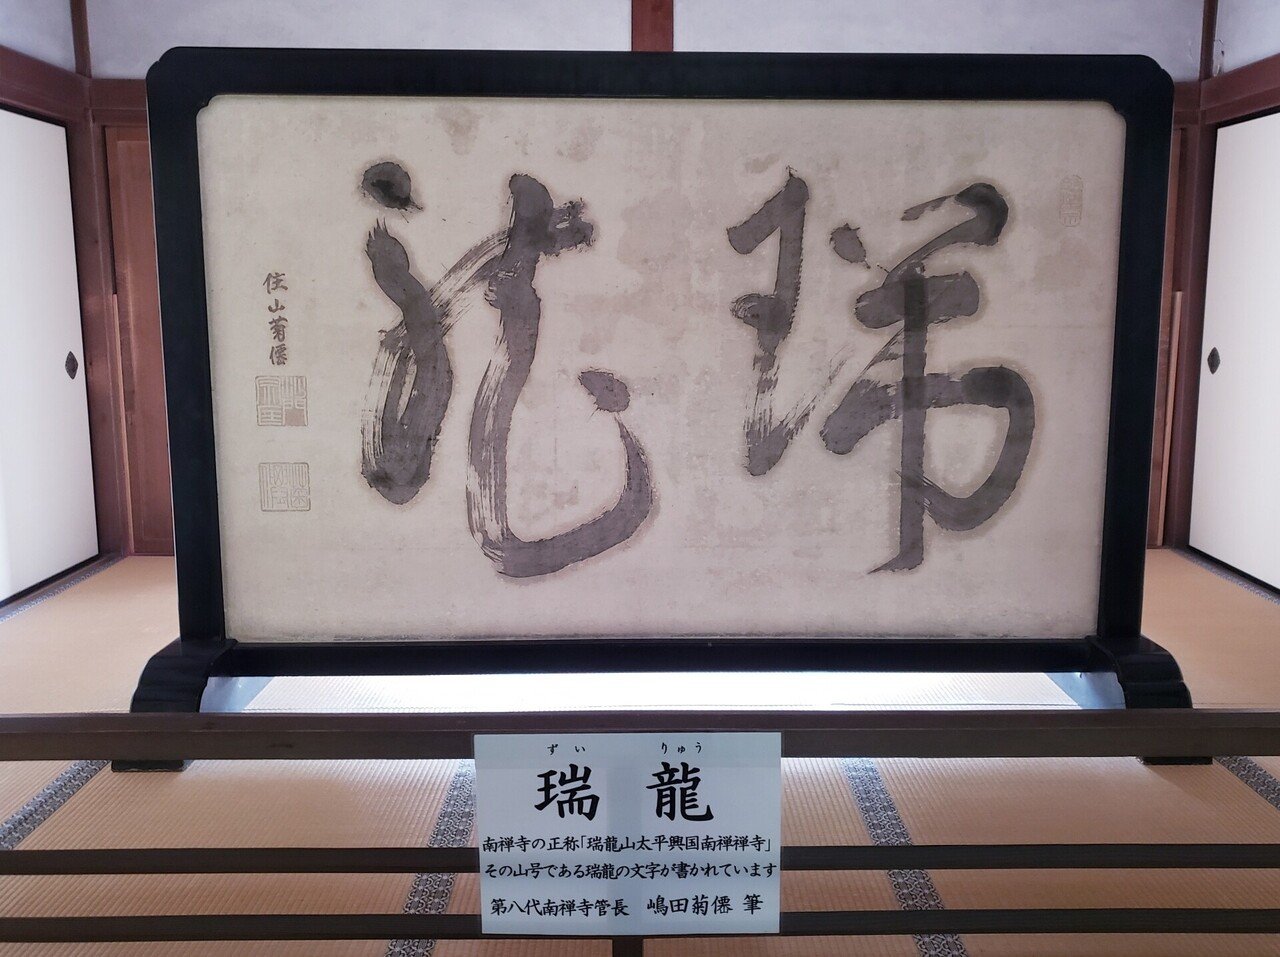 瑞龍
住山菊僊
ずい りゅう
瑞 龍
南禅寺の正称「瑞龍山太平興国南禅禅寺」
その山号である瑞龍の文字が書かれています
第八代南禅寺管長 嶋田菊僊 筆